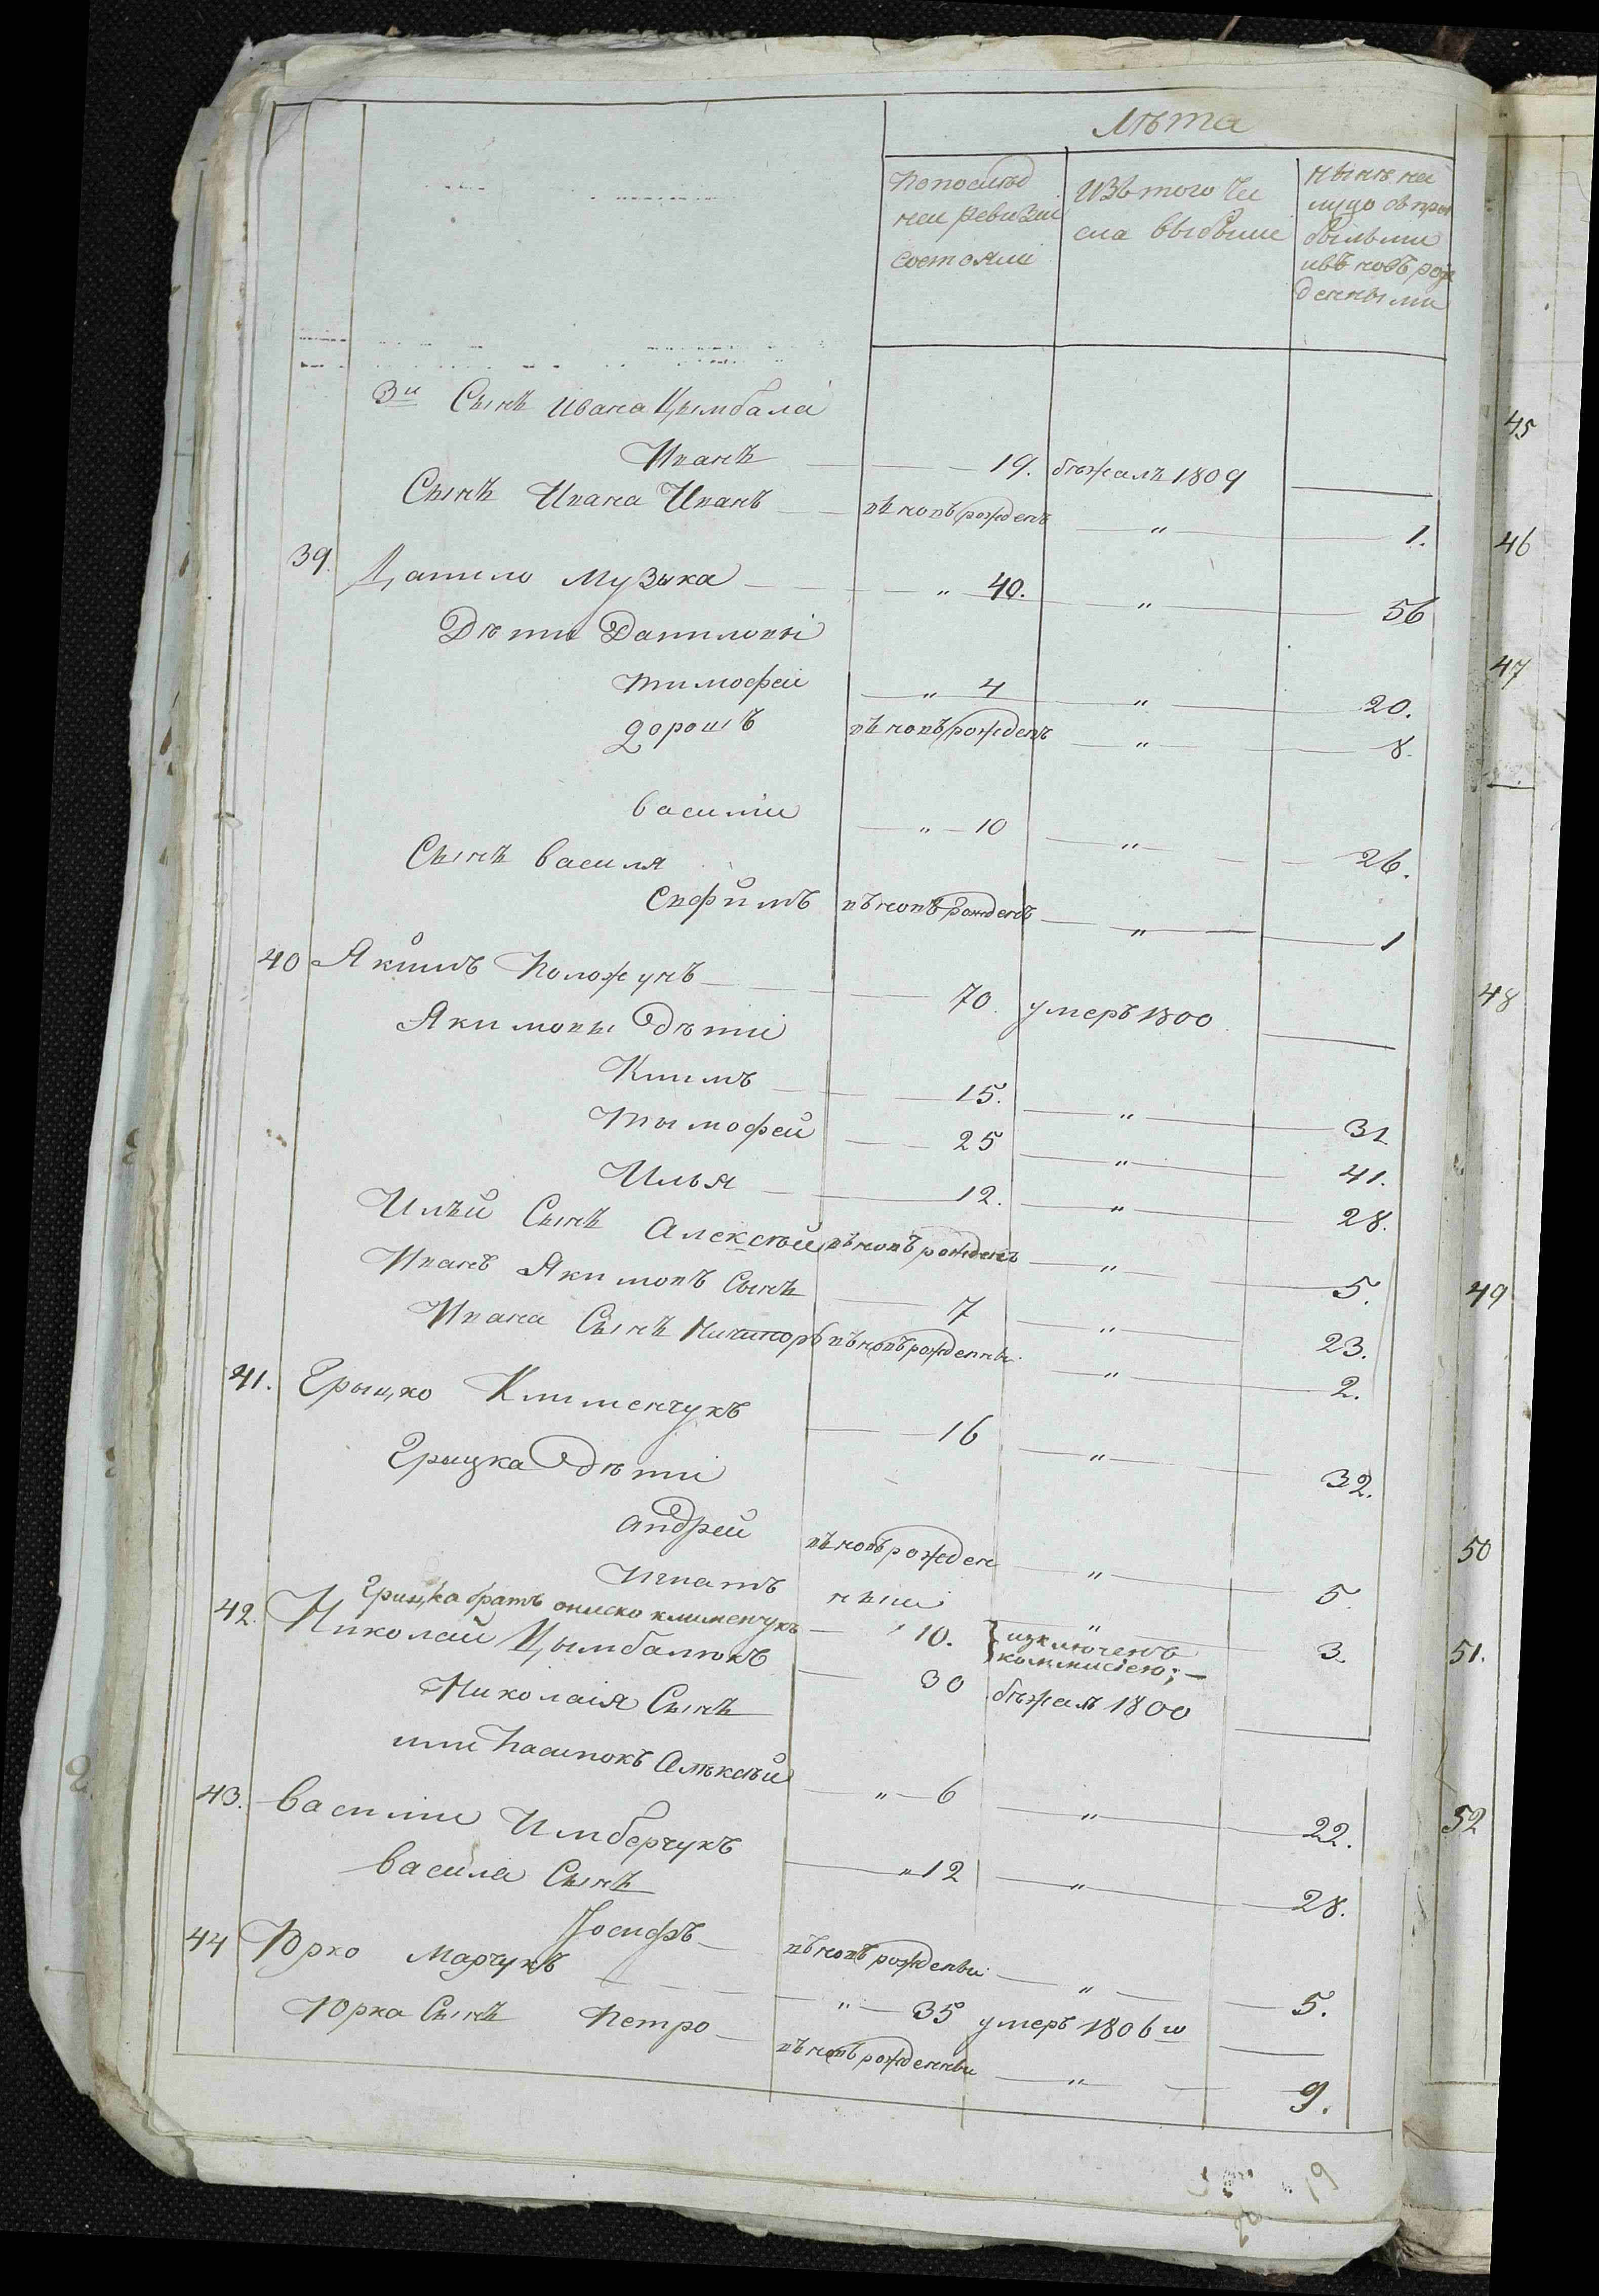 Лѣта
Попослѣд
неи ревизіи
состояли
Изъ того чи
сла выбыли
нынѣ на
лицо съ при
былыми
ивъ новъ рож
денными
3и Сынъ Ивана Цымбала
Иванъ 19. бѣжалъ 1809
Сынъ Ивана Иванъ въ новъ рожденъ " 1.
39. Данило Музыка " 40. " 56
Дѣти Даниловы
Тимофеи " 4 " 20.
Дорошъ въ новъ рожденъ " 8.
Василіи " 10 " 26.
Сынъ Василя
въ новъ рожденъ " 1
40 Якимъ Положунъ 70. умеръ 1800
Якимовы дѣти
Климъ 15. " 31
Тымофей 25 " 41.
Илья 12. " 28.
Илѣи Сынъ Алексѣй въ новъ рожденъ " 5.
Иванъ Якимовъ Сынъ 7 " 23.
Ивана Сынъ Ничипоръ въ новъ рожденны " 2.
41. Грыцко Клименчукъ 16 " 32.
Грыцка дѣти
Андрей въ новъ рожден " 5.
Игнатъ ныи " 3.
Грицка братъ ониско клименчукъ 10. изключенъ коммисіею;
42. Николай Цымбалюкъ 30 бѣжалъ 1800
Николаія Сынъ
или Пасинокъ Алѣксѣй " 6 " 22.
43. Василіи Имберчукъ " 12 " 28.
Васила Сынъ
Іосифъ въ новъ рожденъи " 5.
44 Юрко Марчукъ " 35 умеръ 1806го
Юрка Сынъ Петро въ новъ рожденныи " 9.
45
46
47
48
49
50
51.
52